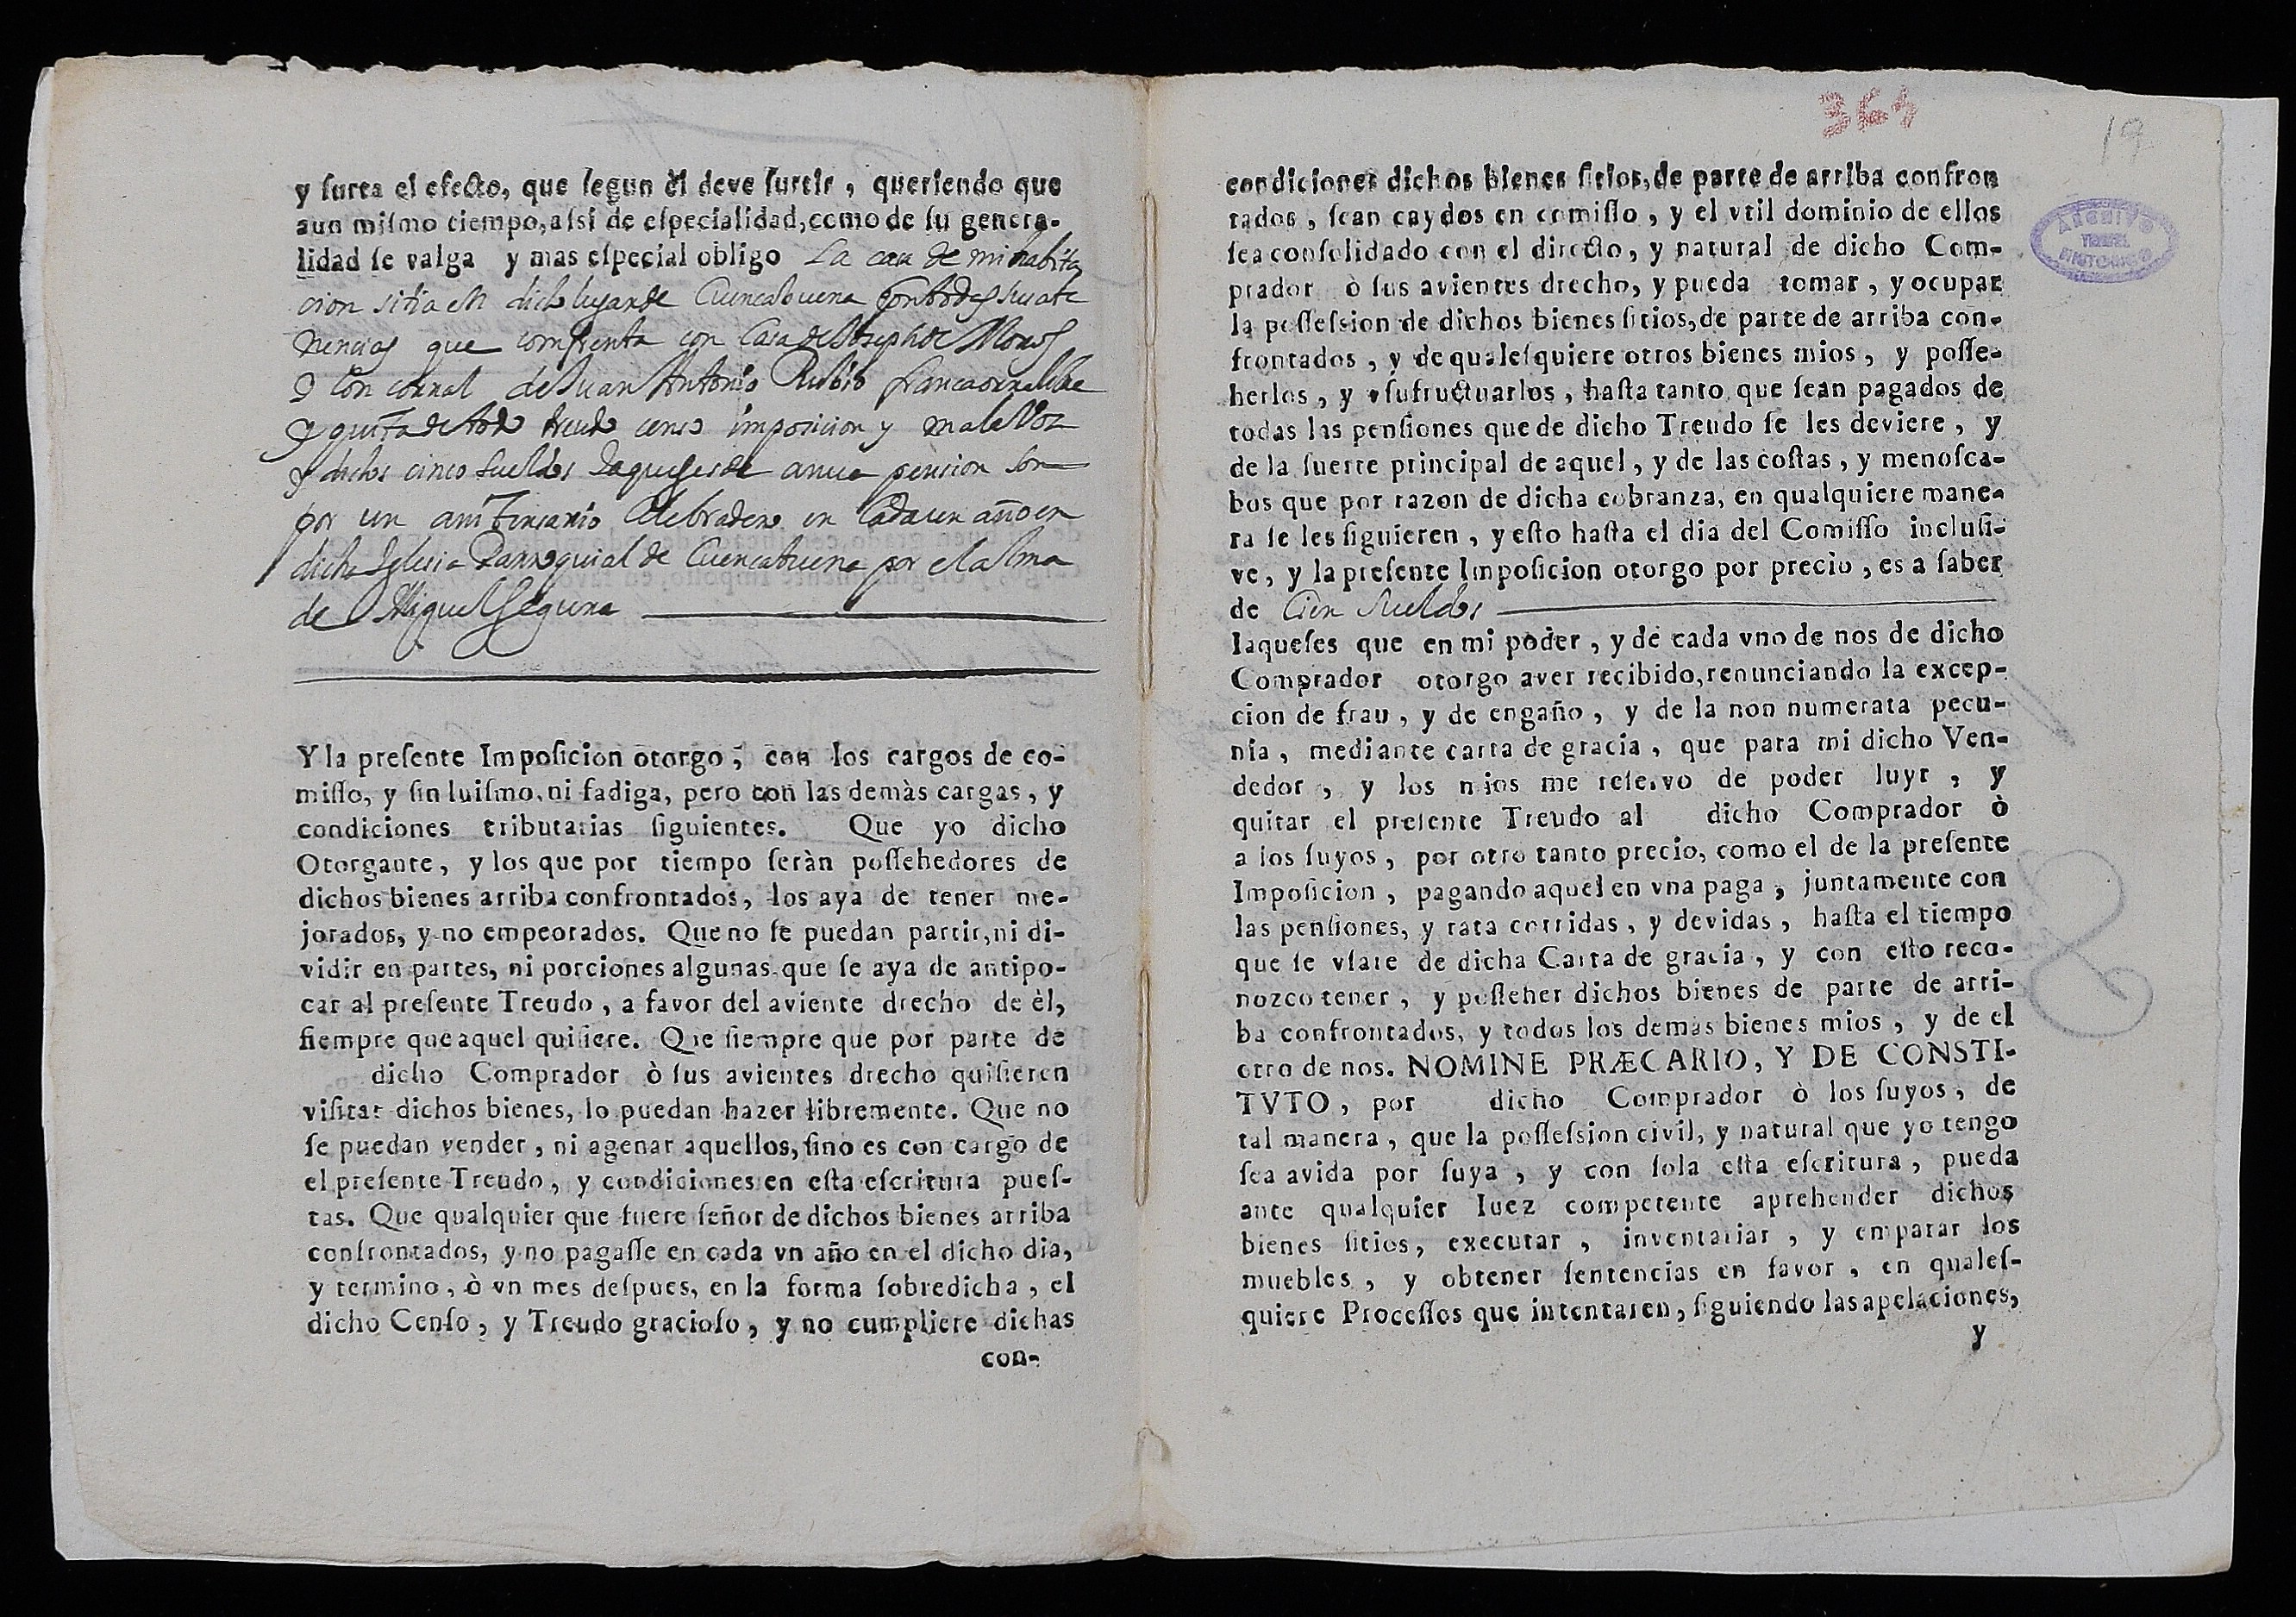 y surta el efecto, que segun èl deve surtir, queriendo que
aun mismo tiempo, assi de especialidad, como de su genera-
lidad se valga y mas especial obligo La casa de mi habita
cion sitia en dicho lugar de Cuencabuena con todas sus ate
nencias que confrenta con Casa de Joseph de
y con corral de Juan Antonio Rubio franca
y quita de todo treudo censo imposicion y mala voz
y dichos cinco sueldos Jaqueses de anua pension son
por un anibersario Celebradero en Cada un año en
dicha Iglesia Parroquial de Cuencabuena por el alma
de Miguel Segura
Y la presente Imposicion otorgo, con los cargos de co-
misso, y sin luismo, ni fadiga, pero con las demàs cargas, y
condiciones tributarias siguientes. Que yo dicho
Otorgante, y los que por tiempo seràn possehedores de
dichos bienes arriba confrontados, los aya de tener me-
jorados, y no empeorados. Que no se puedan partir, ni di-
vidir en partes, ni porciones algunas que se aya de antipo-
car al presente Treudo, a favor del aviente drecho de èl,
siempre que aquel quisiere. Que siempre que por parte de
dicho Comprador ò sus avientes drecho quisieren
visitar dichos bienes, lo puedan hazer libremente. Que no
se puedan vender, ni agenar aquellos, sino es con cargo de
el presente Treudo, y condiciones en esta escritura pues-
tas. Que qualquier que fuere señor de dichos bienes arriba
confrontados, y no pagasse en cada vn año en el dicho dia,
y termino, ò vn mes despues, en la forma sobredicha, el
dicho Censo, y Treudo gracioso, y no cumpliere dichas
con-
364
19
ARCHIVO
TERUEL
HISTORICO
condiciones dichos bienes sitios, de parte de arriba confron
tados, sean caydos en comisso, y el vtil dominio de ellos
sea consolidado con el directo, y natural de dicho Com-
prador ò sus avientes drecho, y pueda tomar, y ocupar
la possession de dichos bienes sitios, de parte de arriba con-
frontados, y de qualesquiere otros bienes mios, y posse-
herlos, y vsufructuarlos, hasta tanto que sean pagados de
todas las pensiones que de dicho Treudo se les deviere, y
de la suerte principal de aquel, y de las costas, y menosca-
bos que por razon de dicha cobranza, en qualquiere mane-
ra se les siguieren, y esto hasta el dia del Comisso inclusi-
ve, y la presente Imposicion otorgo por precio, es a saber
de Cien sueldos
Iaqueses que en mi poder, y de cada vno de nos de dicho
Comprador otorgo aver recibido, renunciando la excep-
cion de frau, y de engaño, y de la non numerata pecu-
nia, mediante carta de gracia, que para mi dicho Ven-
dedor, y los mios me reservo de poder luyr, y
quitar el presente Treudo al dicho Comprador ò
a los suyos, por otro tanto precio, como el de la presente
Imposicion, pagando aquel en vna paga, juntamente con
las pensiones, y rata corridas, y devidas, hasta el tiempo
que se vsare de dicha Carta de gracia, y con esto reco-
nozco tener, y posseher dichos bienes de parte de arri-
ba confrontados, y todos los demas bienes mios, y de el
otro de nos. NOMINE PRÆCARIO, Y DE CONSTI-
TVTO, por dicho Comprador ò los suyos, de
tal manera, que la possession civil, y natural que yo tengo
sea avida por suya, y con sola esta escritura, pueda
ante qualquier Iuez competente aprehender dichos
bienes sitios, executar, inventariar, y emparar los
muebles, y obtener sentencias en favor, en quales-
quiere Processos que intentaren, siguiendo las apelaciones,
y